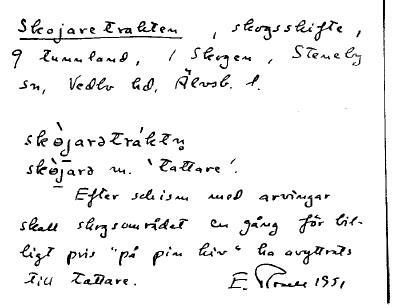 Skojaretrakten, skogsskifte,
9 tunnland, i Skogen, Steneby
sn, Vedbo hd, Älvsb. l.
skòjarətrák̀tn̥
skòjarə m. 'tattare'.
Efter schism med arvingar
skall skogsområdet en gång för bil-
ligt pris "på pin kiv" ha avyttrats
till tattare. E. 1951